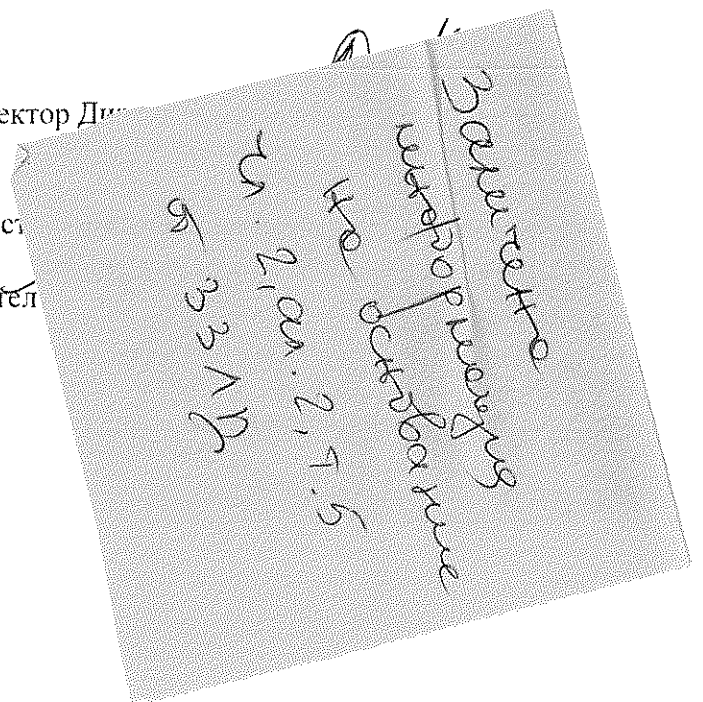 ектор Ди
ст
тел
Заличена
информация
на основание
чл. 2, ал. 2, т. 5
от ЗЗЛД